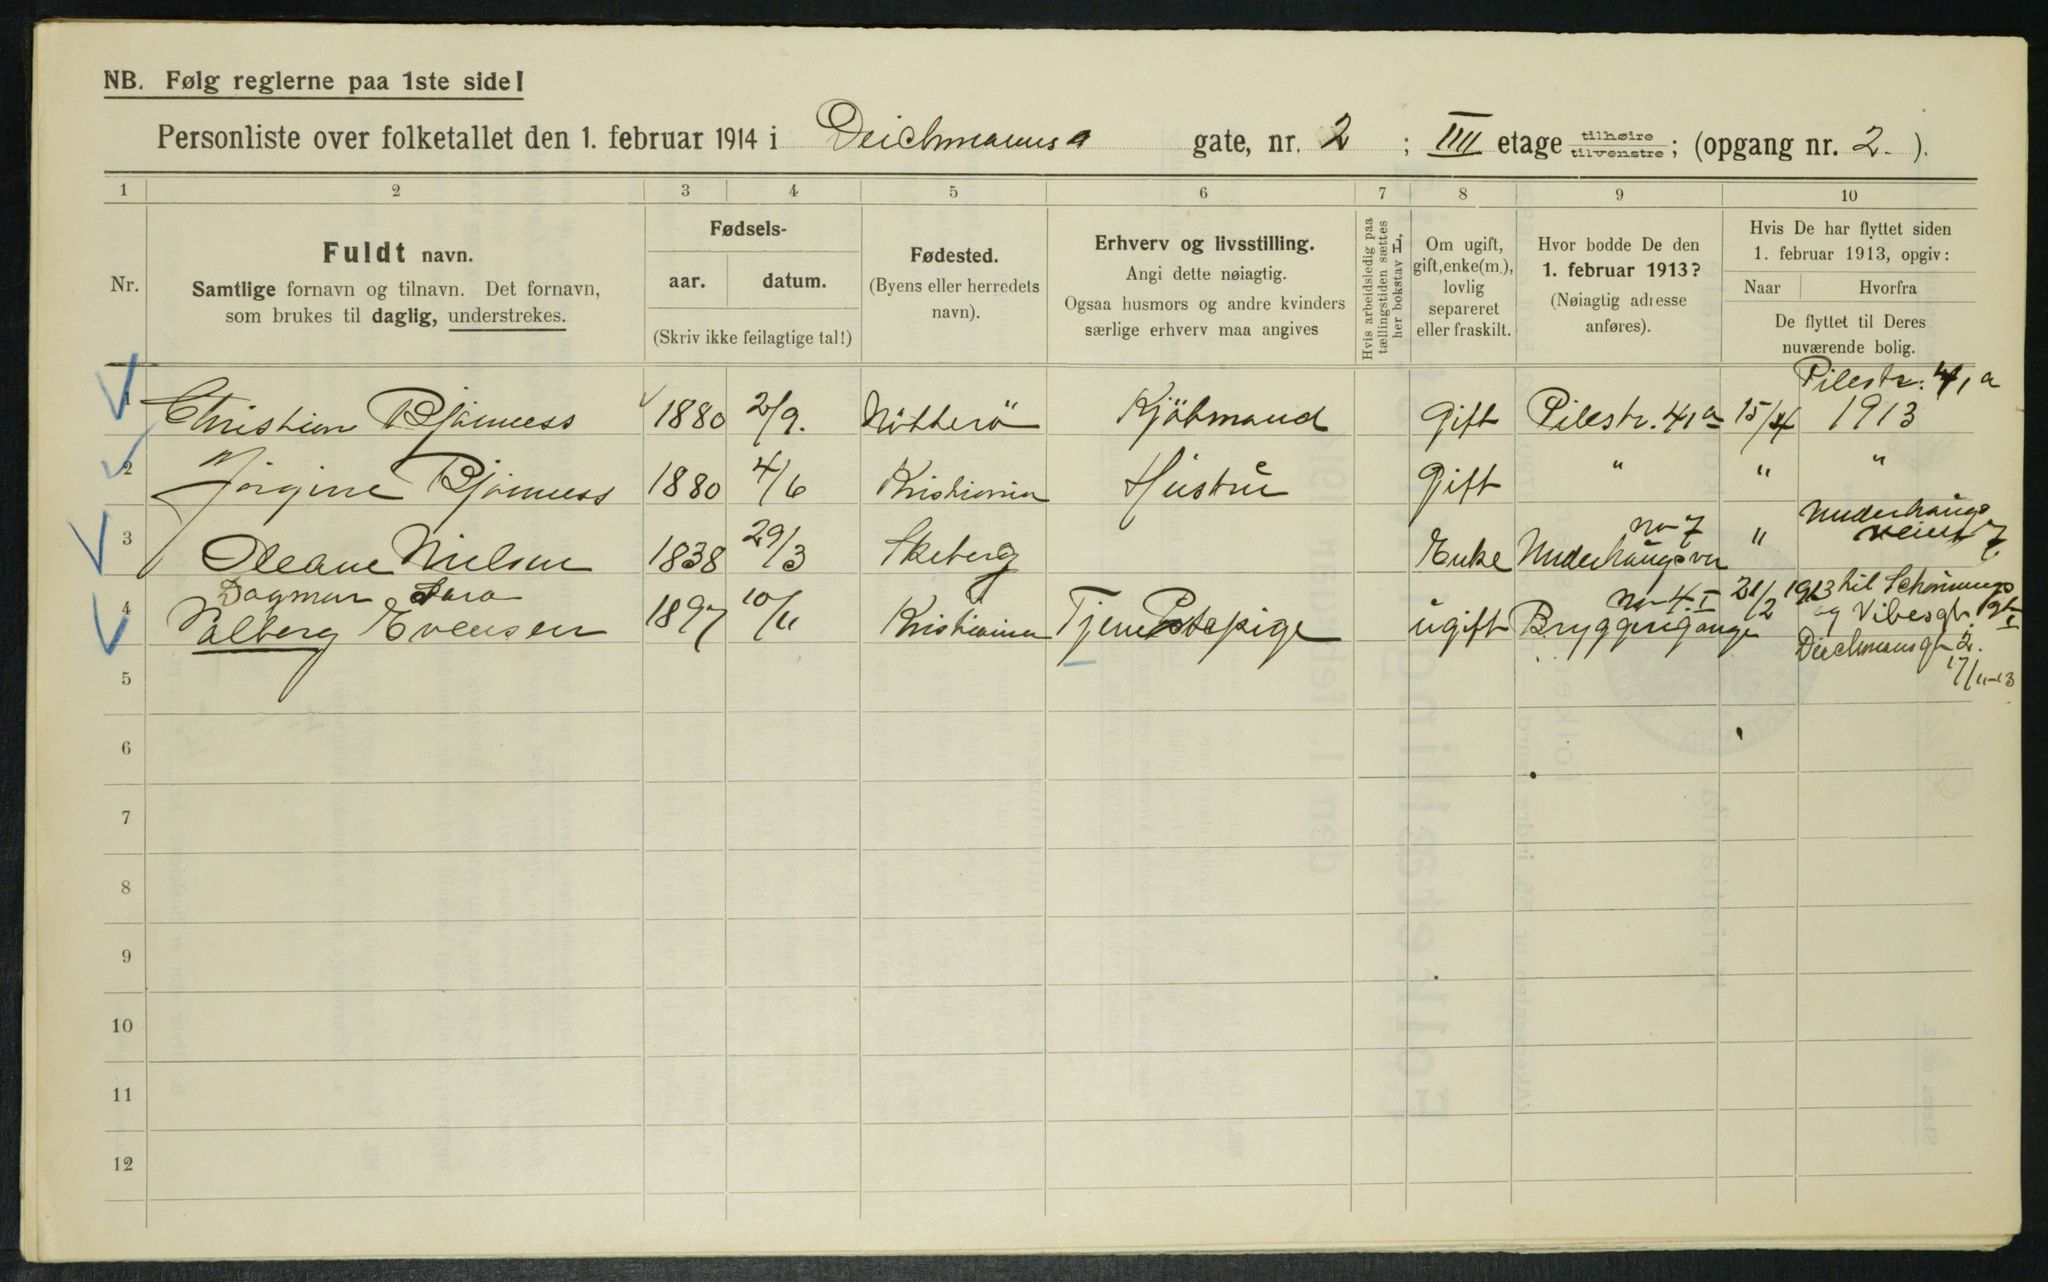 NB. Følg reglerne paa 1ste side!
Personliste over folketallet den 1. februar 1914 i Deichmanns gate, nr. 2 ; IIII etage tilhøire tilvenstre; (opgang nr. 2. ).
1 2 3 4 5 6 7 8 9 10
Nr.
Fuldt navn.
Samtlige fornavn og tilnavn. Det fornavn,
som brukes til daglig, understrekes.
Fødsels-
aar. datum.
(Skriv ikke feilagtige tal!)
Fødested.
(Byens eller herredets
navn).
Erhverv og livsstilling.
Angi dette nøiagtig.
Ogsaa husmors og andre kvinders
særlige erhverv maa angives
Hvis arbeidsledig paa
tællingstiden sættes
her bokstav L.
Om ugift,
gift, enke(m.),
lovlig
separeret
eller fraskilt.
Hvor bodde De den
1. februar 1913?
(Nøiagtig adresse
anføres).
Hvis De har flyttet siden
1. februar 1913, opgiv:
Naar Hvorfra
De flyttet til Deres
nuværende bolig.
Pilestr. 41 a
1 Christian Bjørness 1880 2/9. Nötterö Kjöbmand Gift Pilestr. 41 a 15/4 1913
2 Jörgine Bjørness 1880 4/6 Kristiania Hustru Gift " " "
3 Oleane Nielsen 1838 29/3 Skeberg Enke Underhaugsvn no 7 " Underhaugs
veien 7.
Dagmar Sara
4 Valberg Evensen 1897 10/11 Kristiania Tjenestepige ugift Bryggerigangen no 4 I 21/2 1913 til Schønnings
og Vibesgt.
Deichmansgt 2.
17/11-13
5
6
7
8
9
10
11
12